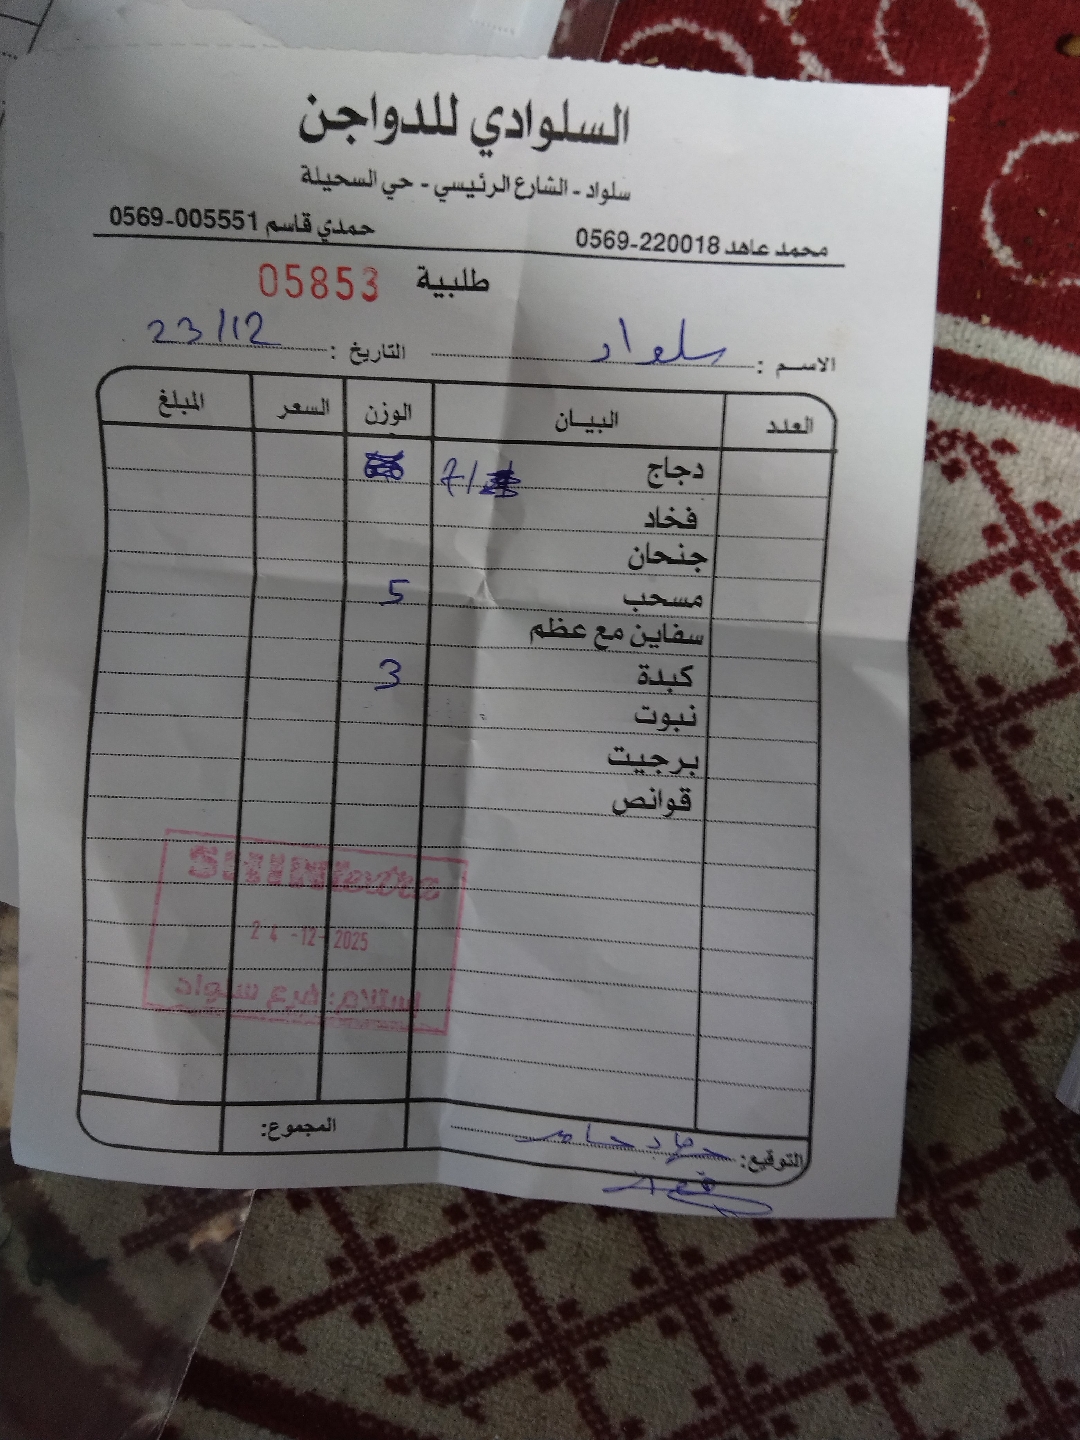 السلوادي للدواجن
سلواد - الشارع الرئيسي - حي السحيلة
محمد عاهد 220018-0569 حمدي قاسم 005551-0569
طلبية 05853
الاسم : سلواد التاريخ : 23/12
العدد البيان الوزن السعر المبلغ
دجاج 7/
فخاد
جنحان
مسحب 5
سفاين مع عظم
كبدة 3
نبوت
برجيت
قوانص
SHINI extra
24-12-2025
إستلام: فرع سلواد
المجموع:
التوقيع: